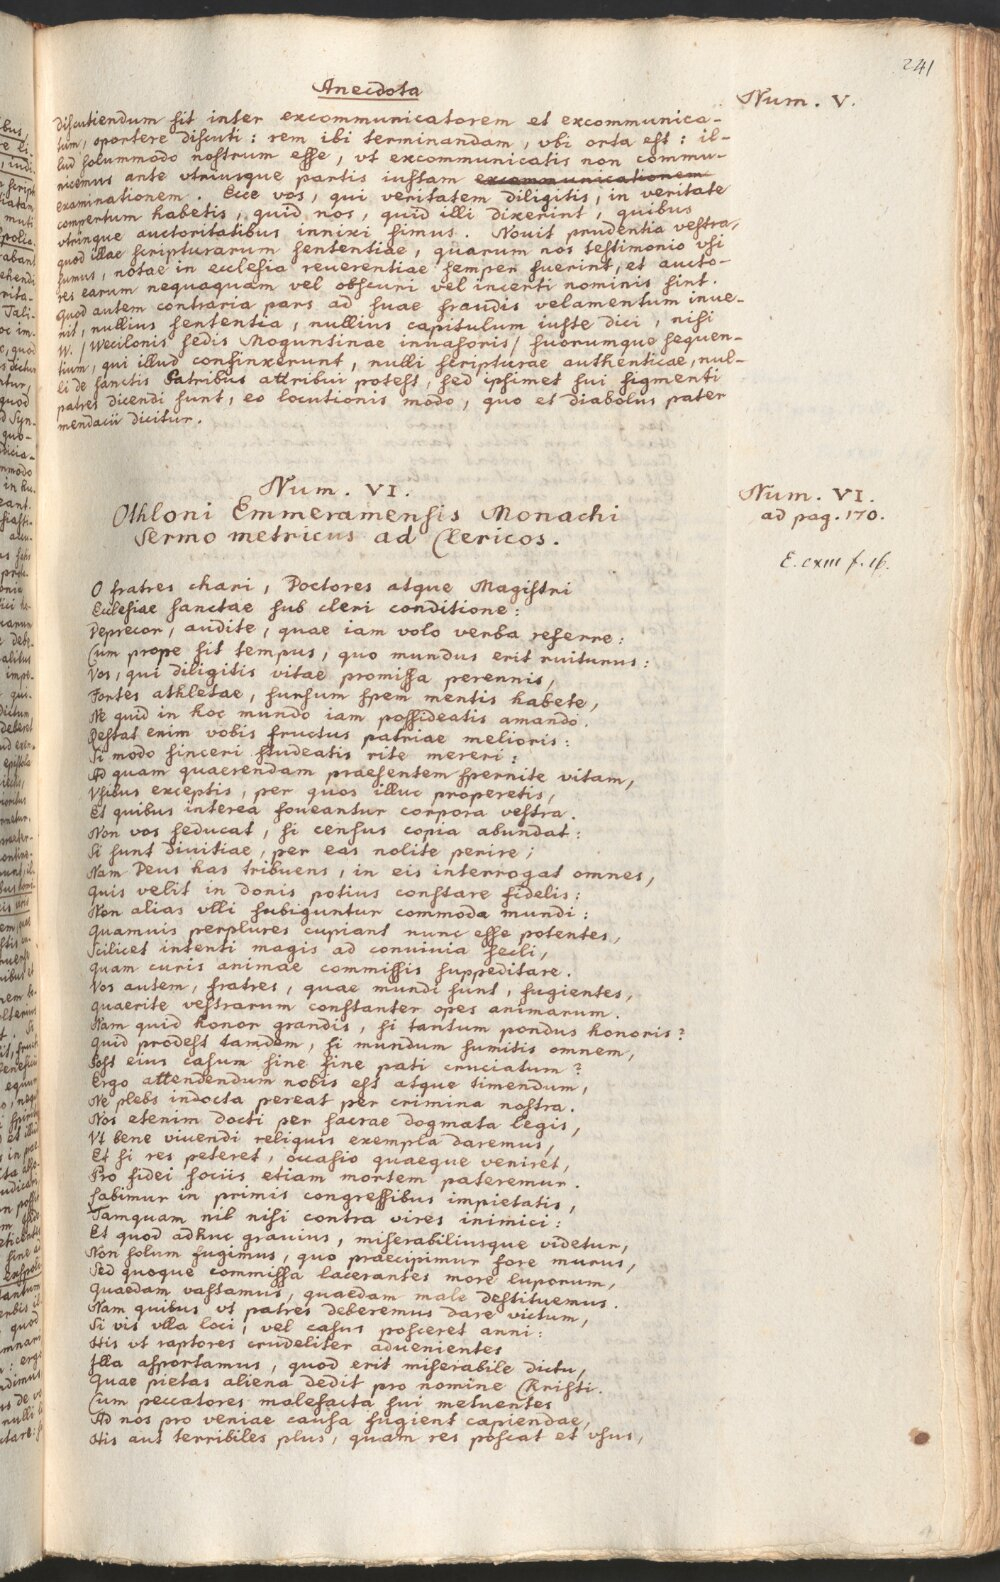 241
Anecdota
Num. V.
discutiendum sit inter excommunicatorem et excommunica-
tum, oportere discuti: rem ibi terminandam, vbi orta est: il-
lud solummodo nostrum esse, vt excommunicatis non commu-
nicemus ante vtriusque partis iustam excommunicationem
examinationem. Ecce vos, qui veritatem diligitis, in veritate
compertum habetis, quid nos, quid illi dixerint, quibus
vtrinque auctoritatibus innixi simus. Novit prudentia vestra,
quod illae scripturarum sententiae, quarum nos testimonio vsi
sumus, notae in ecclesia reuerentiae semper fuerint, et aucto-
res earum nequaquam vel obscuri vel incerti nominis sint.
Quod autem contraria pars ad suae fraudis velamentum inue-
nit, nullius sententia, nullius capitulum iuste dici, nisi
W. / Wecilonis sedis Moguntinae inuasoris / suorumque sequen-
tium, qui illud confinxerunt, nulli scripturae authenticae, nul-
li de sanctis Patribus attribui potest, sed ipsimet sui figmenti
patres dicendi sunt, eo locutionis modo, quo et diabolus pater
mendacii dicitur.
Num. VI.
Othloni Emmeramensis Monachi
Sermo metricus ad Clericos.
Num. VI.
ad pag. 170.
E. cxiii f. 16.
O fratres chari, Doctores atque Magistri
Ecclesiae sanctae sub cleri conditione:
Deprecor, audite, quae iam volo verba referre:
Cum prope sit tempus, quo mundus erit ruiturus:
Vos, qui diligitis vitae promissa perennis,
Fortes athletae, sursum spem mentis habete,
Ne quid in hoc mundo iam possideatis amando.
Restat enim vobis fructus patriae melioris:
Si modo sinceri studeatis rite mereri:
Ad quam quaerendam praesentem spernite vitam,
Vsibus exceptis, per quos illuc properetis,
Et quibus interea foueantur corpora vestra.
Non vos seducat, si census copia abundat:
Si sunt diuitiae, per eas nolite perire;
Nam Deus has tribuens, in eis interrogat omnes,
Quis velit in donis potius constare fidelis:
Non alias vlli subiguntur commoda mundi:
Quamuis perplures cupiant nunc esse potentes,
Scilicet intenti magis ad conuiuia secli,
Quam curis animae commissis suppeditare.
Vos autem, fratres, quae mundi sunt, fugientes,
Quaerite vestrarum constanter opes animarum.
Nam quid honor grandis, si tantum pondus honoris?
Quid prodest tandem, si mundum sumitis omnem,
Post eius casum sine fine pati cruciatum?
Ergo attendendum nobis est atque timendum,
Ne plebs indocta pereat per crimina nostra.
Nos etenim docti per sacrae dogmata legis,
Vt bene viuendi reliquis exempla daremus,
Et si res peteret, occasio quaeque veniret,
Pro fidei sociis etiam mortem pateremur.
Labimur in primis congressibus impietatis,
Tamquam nil nisi contra vires inimici:
Et quod adhuc grauius, miserabiliusque videtur,
Non solum fugimus, quo praecipimur fore murus,
Sed quoque commissa lacerantes more luporum,
Quaedam vastamus, quaedam male destituemus.
Nam quibus vt patres deberemus dare victum,
Si vis vlla loci, vel casus posceret anni:
His vt raptores crudeliter aduenientes
Illa asportamus, quod erit miserabile dictu,
Quae pietas aliena dedit pro nomine Christi.
Cum peccatores malefacta sui metuentes
Ad nos pro veniae causa fugient capiendae,
His aut terribiles plus, quam res poscat et vsus,